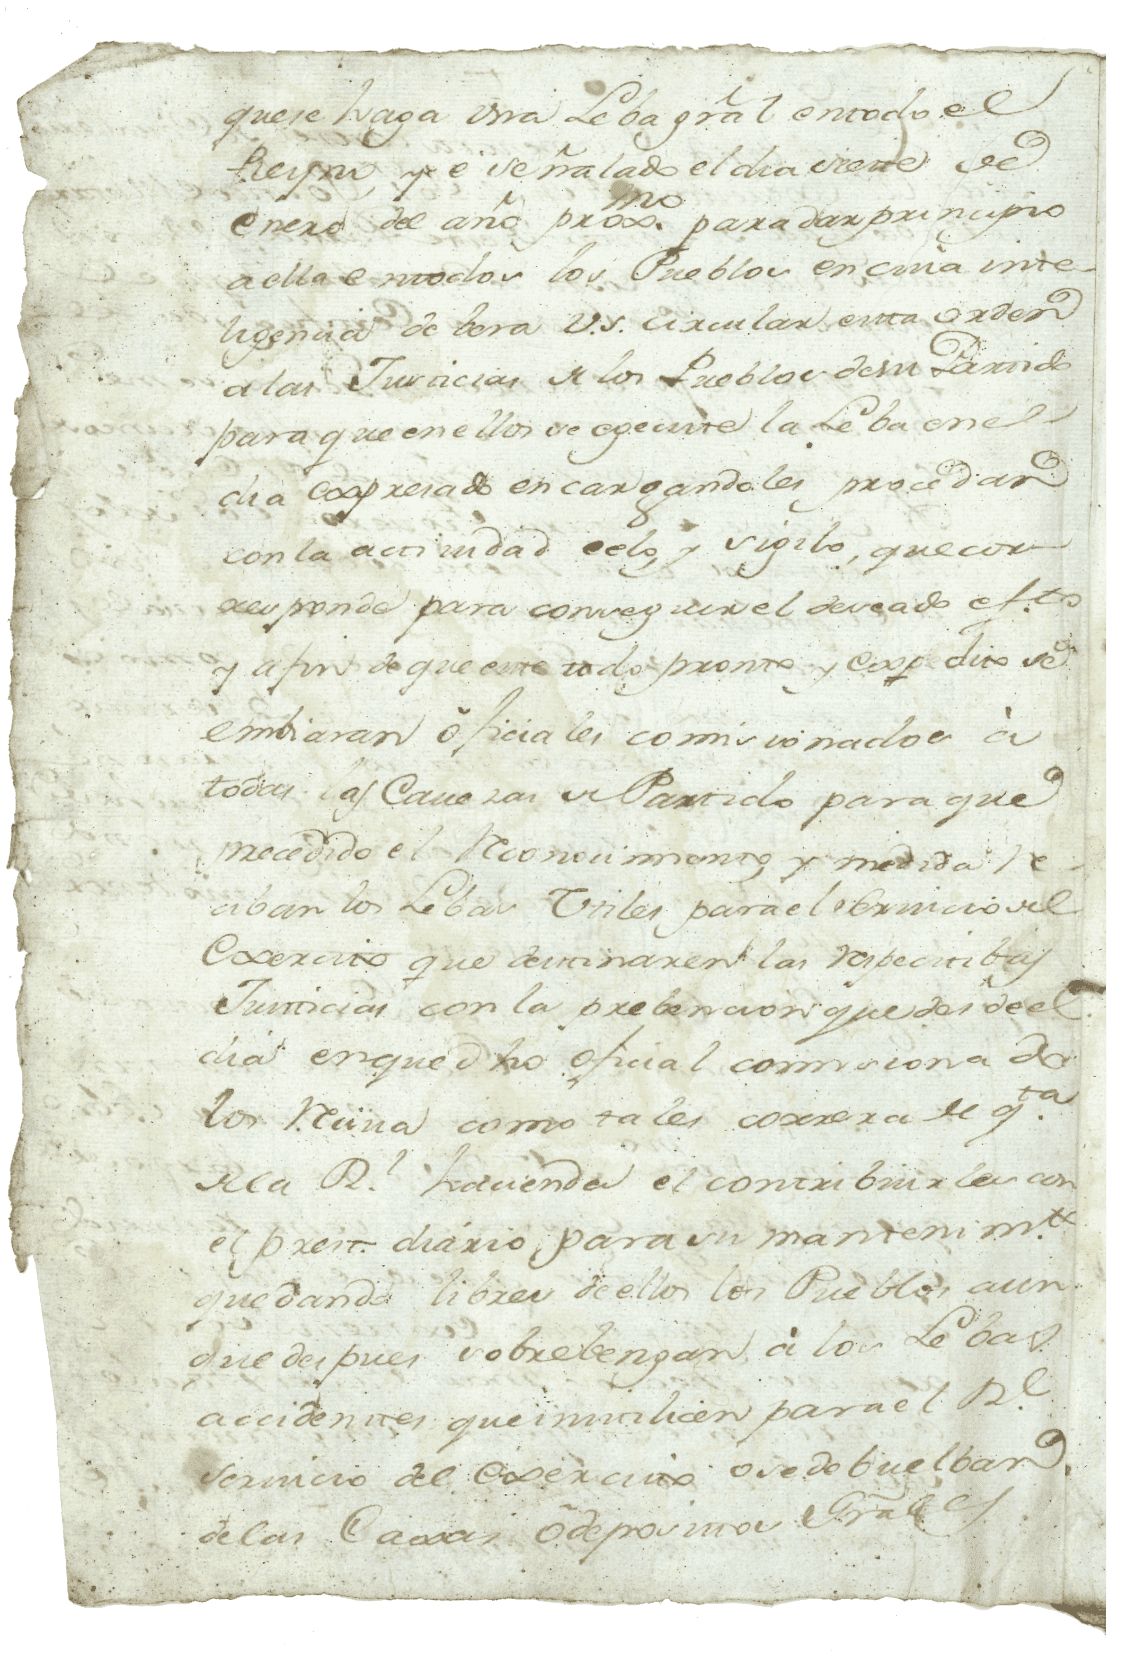 que se haga una Leba grãl en todo el
Reyno, y e señalado el dia siete de
enero del año prox.mo para dar principio
a ella en todos los Pueblos en cuia inte-
ligencia debera V.S. circular esta orden
a las Justicias de los Pueblos de su Partido
para que en ellos se egecute la Leba en el
dia expresado encargandoles procedan
con la actividad celo, y sigilo, que cor-
responde para conseguir el deseado ef.to
y a fin de que este todo pronto y expedito se
embiaran oficiales comisionados à
todas las Cauezas de Partido para que
precedido el Reconocimiento, y medida re-
ciban los Lebas Utiles para el servicio del
Exercito que destinaren las respectibas
Justicias con la prebencion que desde el
dia en que dho oficial comisionado
los Reciva como tales correra de q.ta
de la R.l hacienda el contribuirles con
el prest. diário, para su mantenim.to
quedando libres de ellos los Pueblos aun
que despues sobrebengan à los Lebas
accidentes que inutilicen para el R.l
servicio del Exercito o se debuelban
de las Caxas ò depositos Grãles